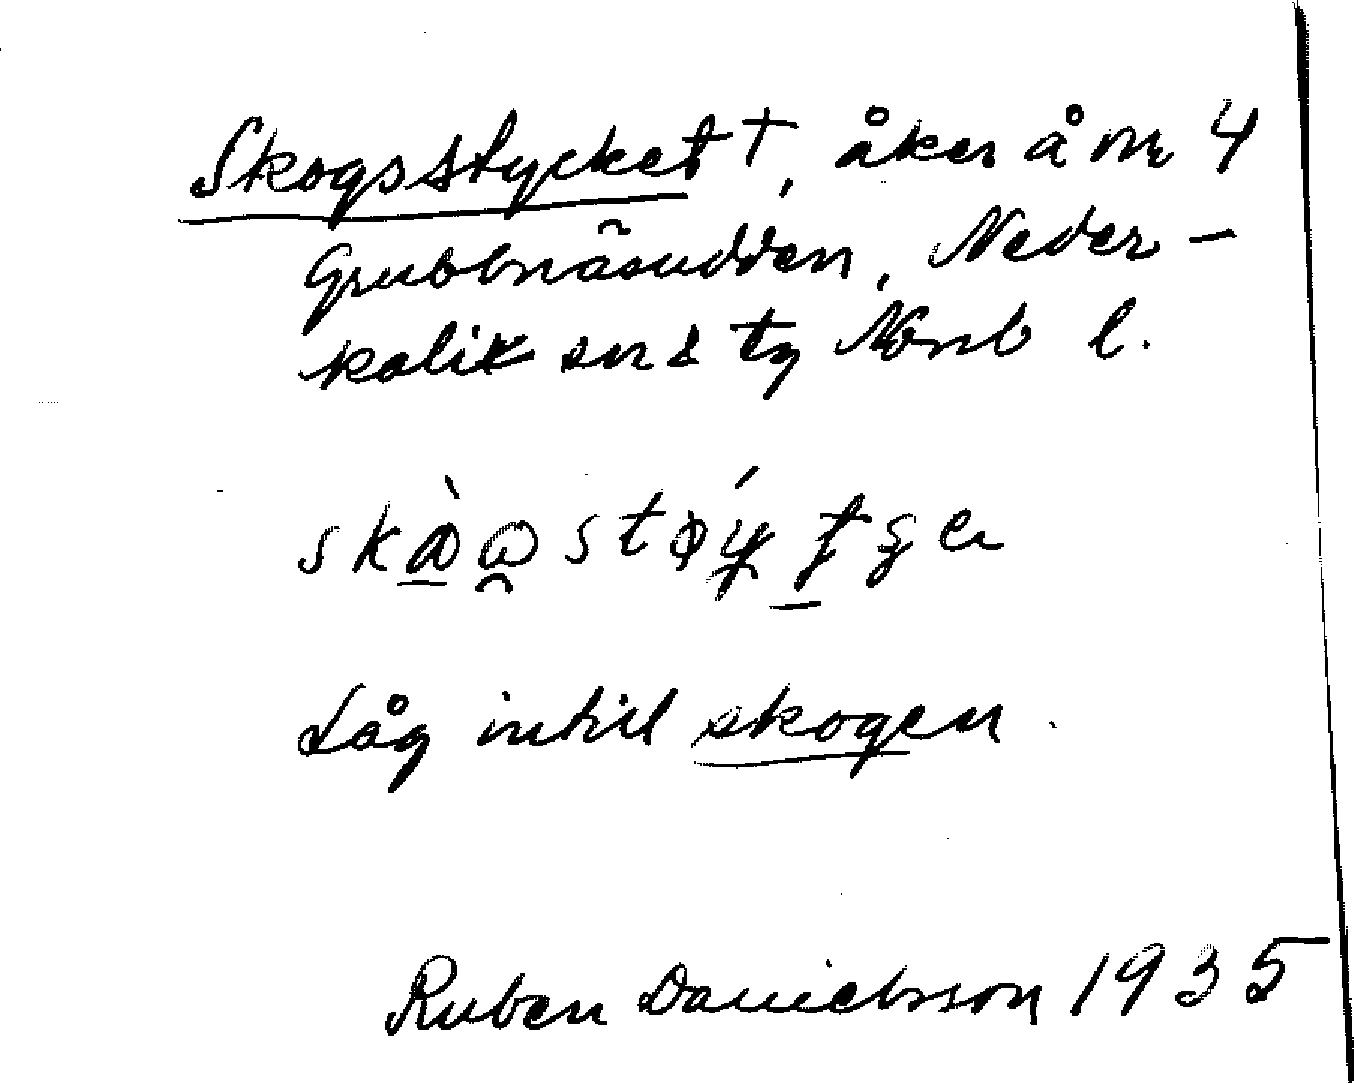 Skogsstycket †, åker å nr 4
Grubbnäsudden, Neder-
kalix sn & tg Norrb l.
Låg intill skogen.
Ruben Danielsson 1935